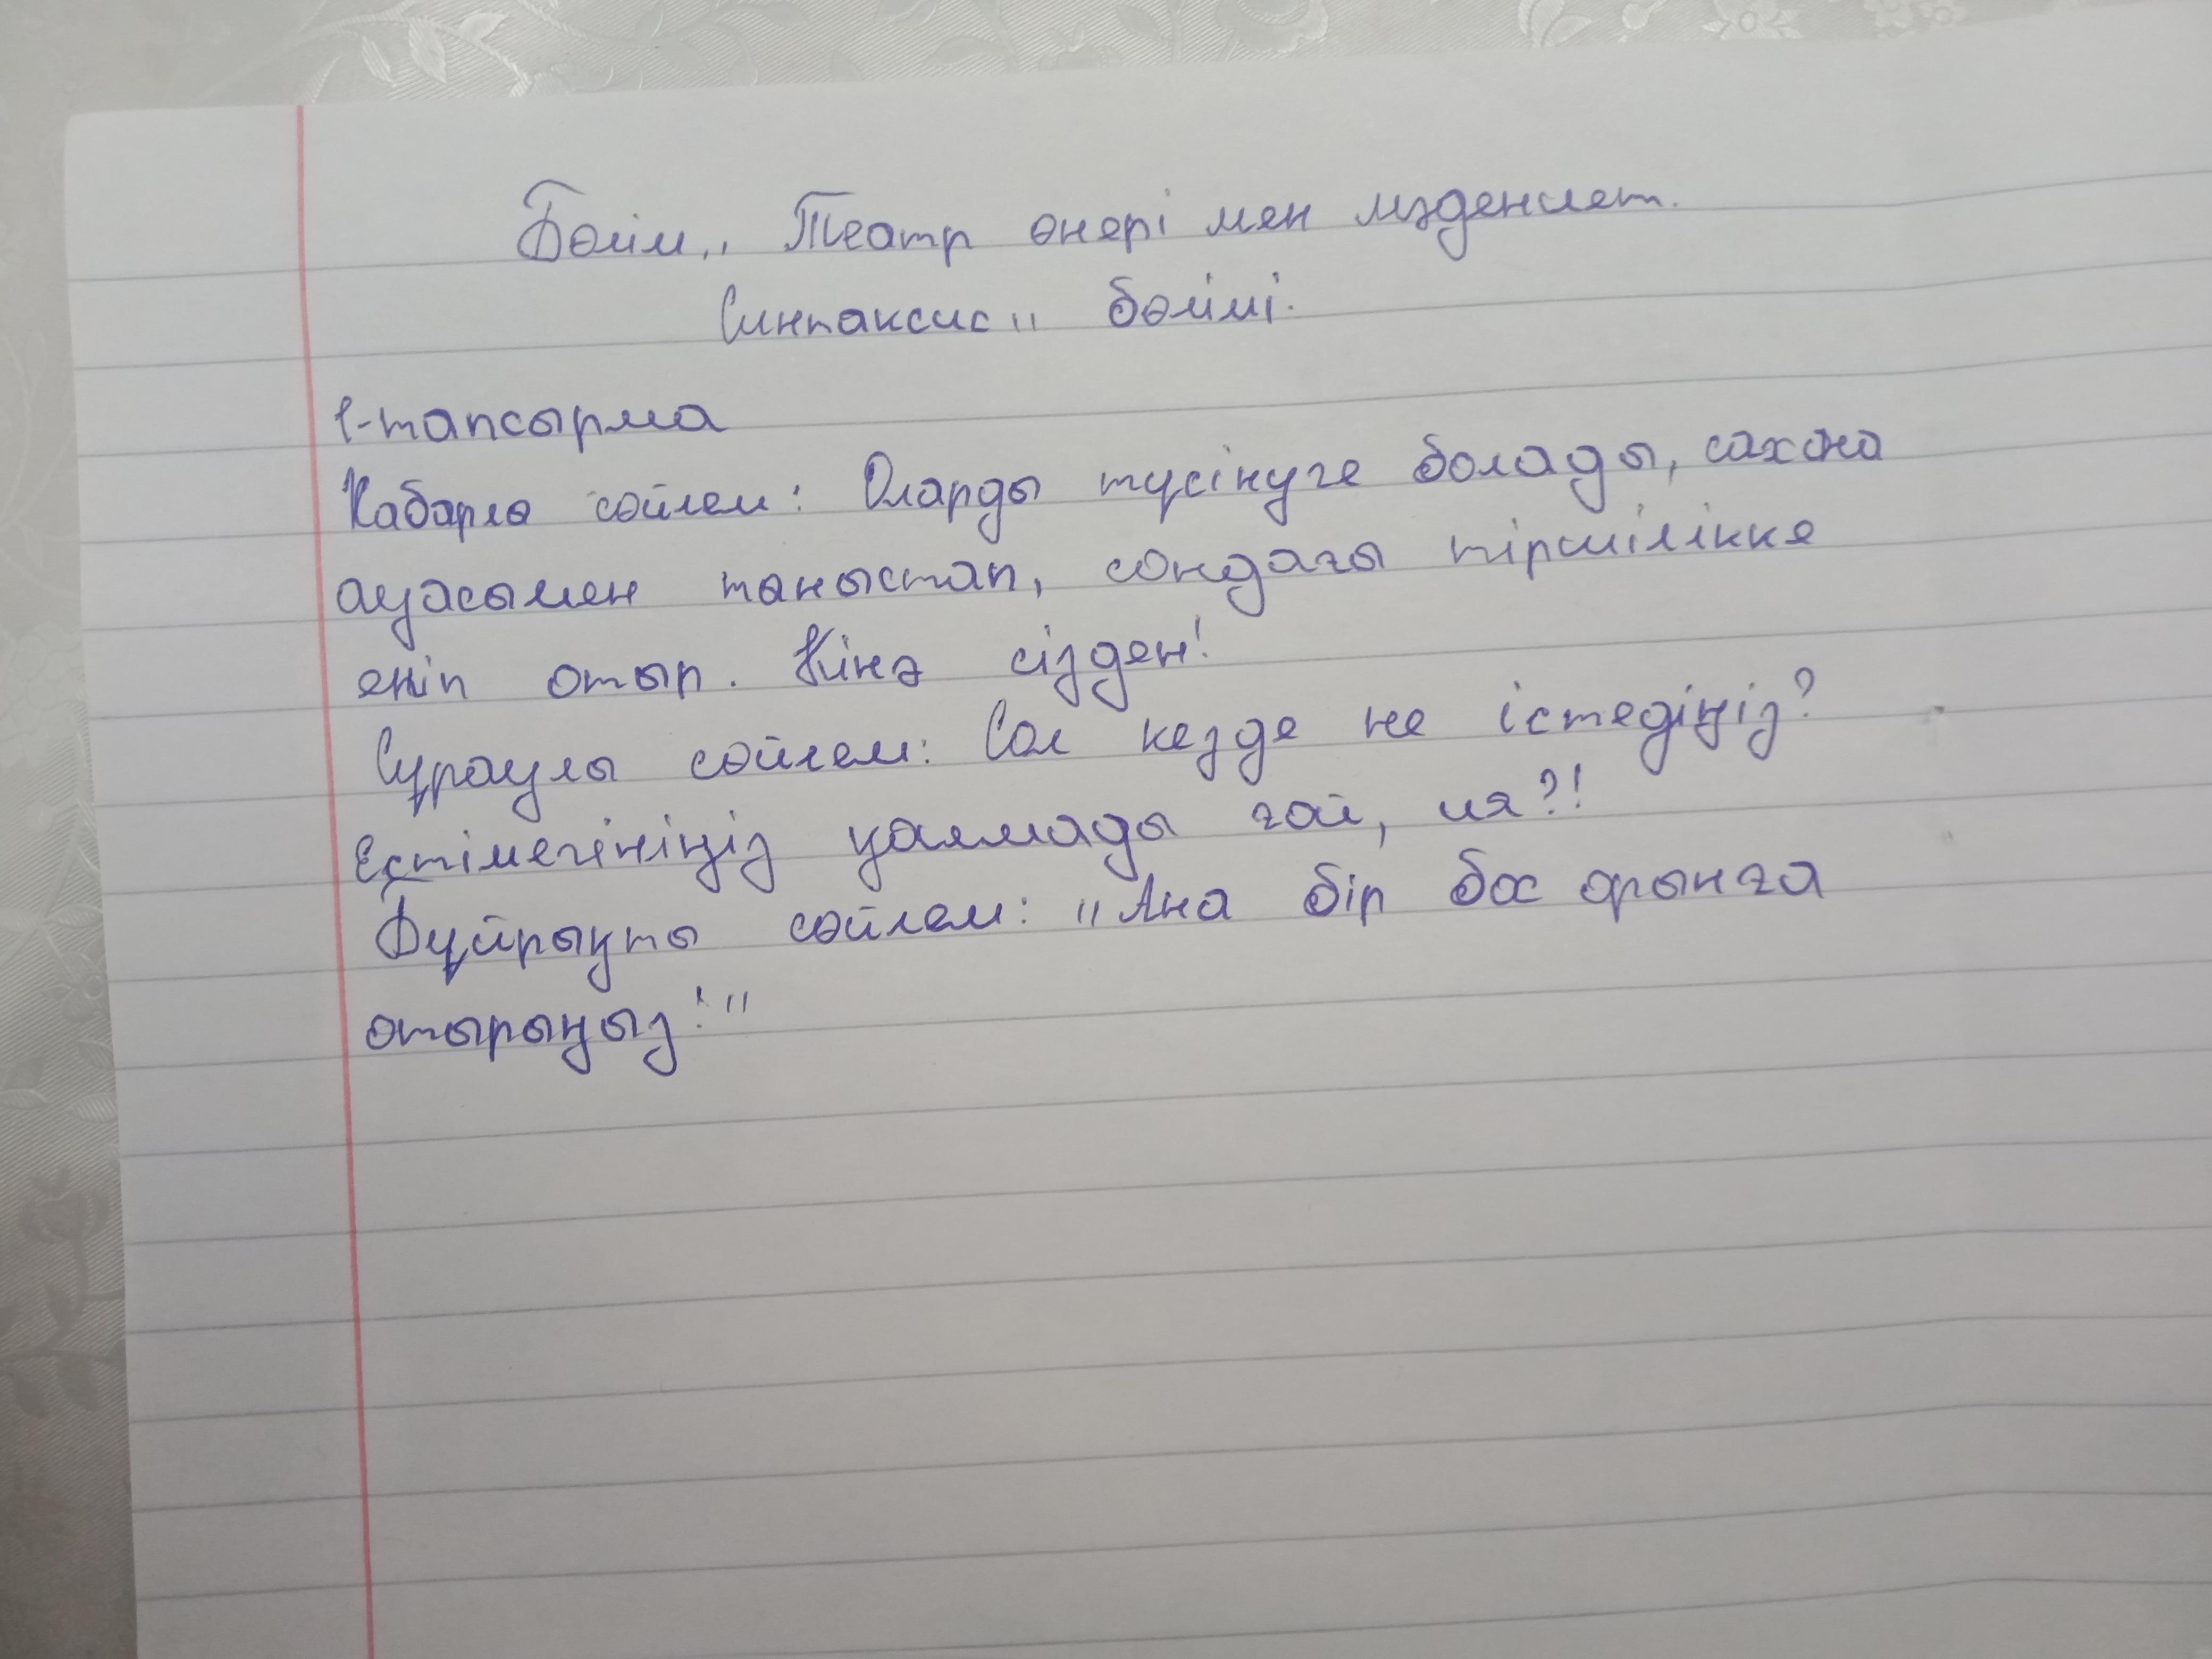 Бөлім „ Театр өнері мен мәдениет.
Синтаксис" бөлімі.
1-тапсырма
Хабарлы сөйлем: Оларды түсінуге болады, сахна
ауасымен таныстап, сондағы тіршілікке
еніп отыр. Кінә сізден!
Сұраулы сөйлем: Сол кезде не істедіңіз?
Естімегініңіз қалмады ғой, ия?!
Бұйрықты сөйлем: „Ана бір бос орынға
отырыңыз!"